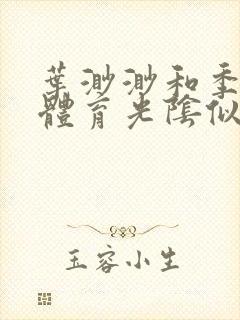 葉渺渺和季
體育老陰似
玉容小生